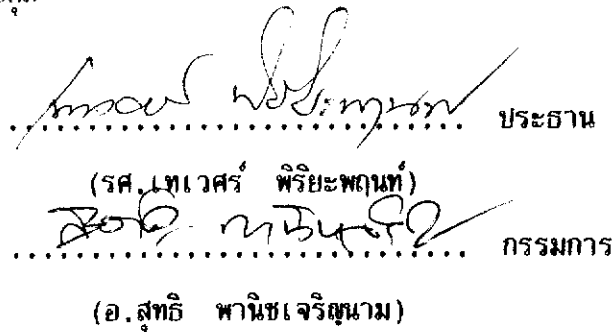 .......................................... ประธาน
(รศ.เทเวศร์ พิริยะพฤนท์)
.......................................... กรรมการ
(อ.สุทธิ พานิชเจริญนาม)